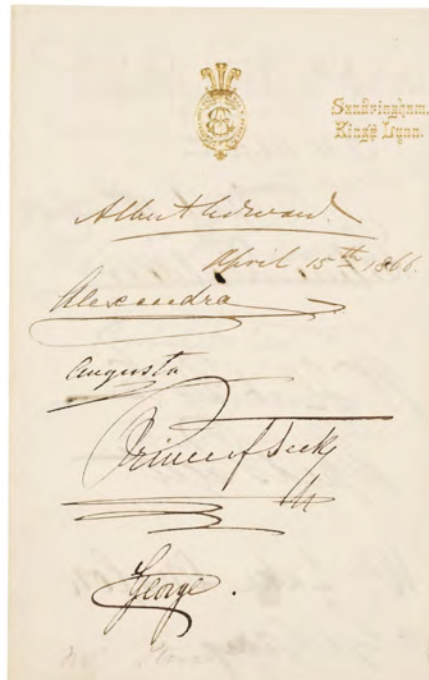 Sandringham,
King's Lynn.
Albert Edward.
April 15th 1866.
Alexandra
Augusta
Prince of Teck
George.